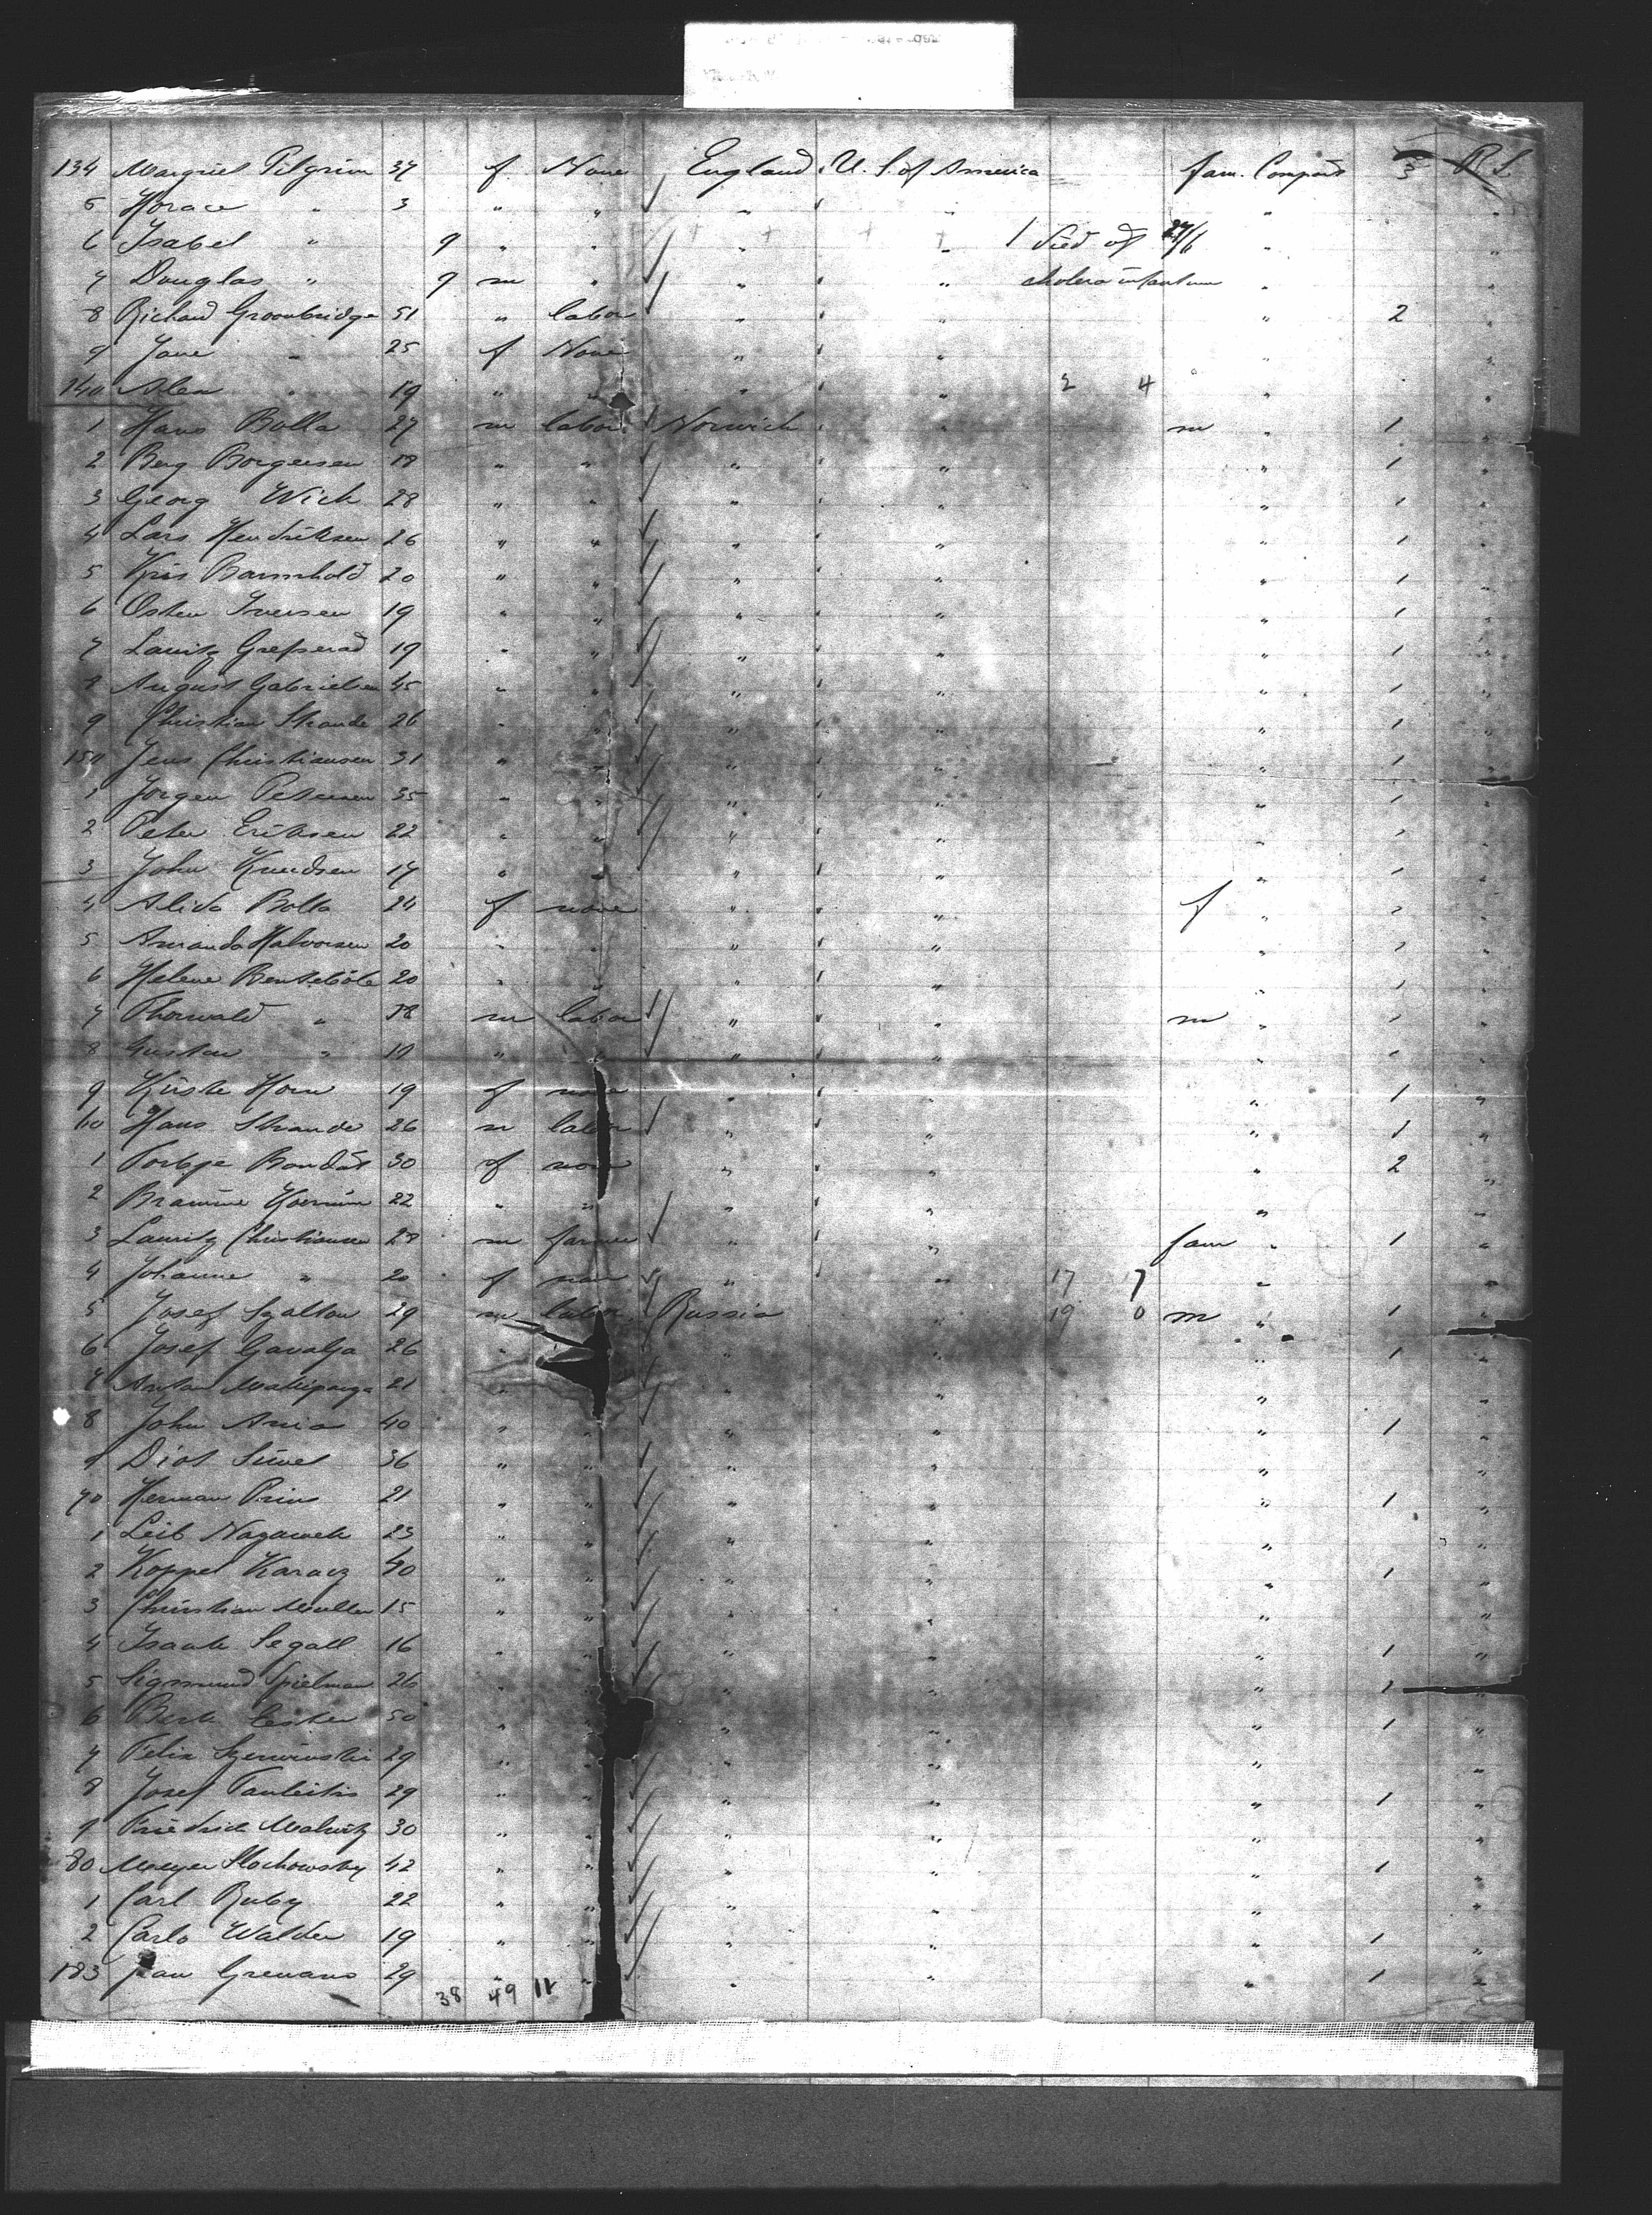 134 Margriet Pilgrim 37 f. None England U. S. of America fam. Compart 3 R. S.
5 Horace " 3 " " " " " "
6 Isabel " 9 " " " " 1 died of 24/6 " "
7 Douglas " 9 m " " " cholera infantum " "
8 Richard Groombridge 51 " labor " " " 2 "
9 Jane " 25 f None " " " "
140 Alex " 19 " " " " 2 4 " "
1 Hans Bolla 27 m labor Norwich " m " 1 "
2 Berg Borgersen 18 " " " " " 1 "
3 Georg Wick 28 " " " " " 1 "
4 Lars Hendriksen 26 " " " " " 1 "
5 Kris Barnhold 20 " " " " " 1 "
6 Osten Iversen 19 " " " " " 1 "
7 Lauritz Grefserad 19 " " " " " 1 "
8 August Gabrielsen 45 " " " " " 1 "
9 Christian Strande 26 " " " " " 1 "
150 Jens Christiansen 31 " " " " " 1 "
1 Jorgen Petersen 35 " " " " " 1 "
2 Peter Eriksen 22 " " " " " "
3 John Knudsen 17 " " " " " "
4 Alida Bolla 24 f none " " f " "
5 Amanda Halvorsen 20 " " " " " "
6 Helene 20 " " " " " "
7 Thorwald " 18 m labor " " m " "
8 Gustav " 19 " " " " " "
9 Kirste Horn 19 f none " " " 1 "
160 Hans Strande 26 m labor " " " 1 "
1 30 f none " " " 2 "
2 22 " " " " " "
3 Lauritz Christiansen 28 m farmer " " fam " 1 "
4 Johanne " 20 f none " " 17 7 " "
5 Josef 29 m labor Russia 19 0 m " 1 "
6 Josef Gavalja 26 " " " " 1 "
7 Anton 21 " " " " "
8 John 40 " " " " " 1 "
9 Diot 36 " " " " " "
70 Herman Prins 21 " " " " " 1 "
1 Leib 23 " " " " " "
2 Koppel 40 " " " " " 1 "
3 Christian Muller 15 " " " " " "
4 Isaak Segall 16 " " " " " 1 "
5 Sigmund Spielman 26 " " " " " 1 "
6 50 " " " " " 1 "
7 Felix 29 " " " " " "
8 Josef 29 " " " " " 1 "
9 Friedrich Malwitz 30 " " " " " "
80 Meyer Slochowsky 42 " " " " " 1 "
1 Carl Ruby 22 " " " " " "
2 Carlo Walder 19 " " " " " 1 "
183 29 " " " " " 1 "
38 49 11